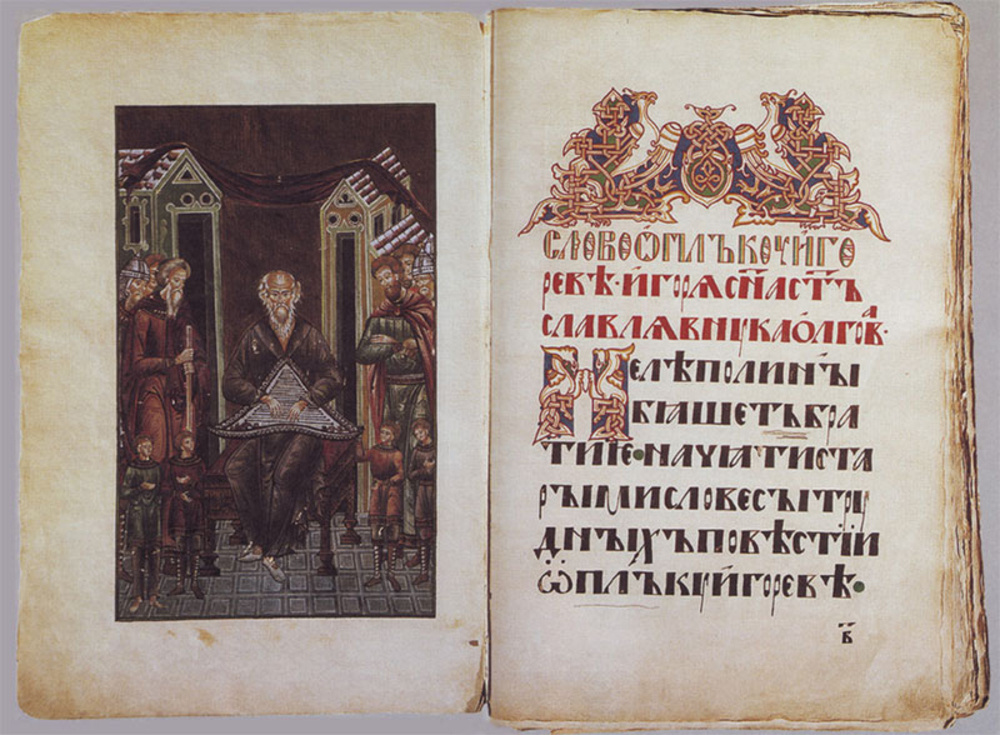 СЛОВОѠПЛЪКꙊИГО
РЕВѢ·ИГОРѦСН҃АСТ҃Ъ
СЛАВЛѦВНꙊКАѺЛГОВⷶ·
НЕЛѢПОЛИНЫ
БꙖШЕТЪБРА
ТИѤ•НАЧꙖТИСТА
РЫМИСЛОВЕСЫТРꙊ
ДНЫХЪПОВѢСТІИ
ѠПЛЪКꙊИГОРЕВѢ•
В҃